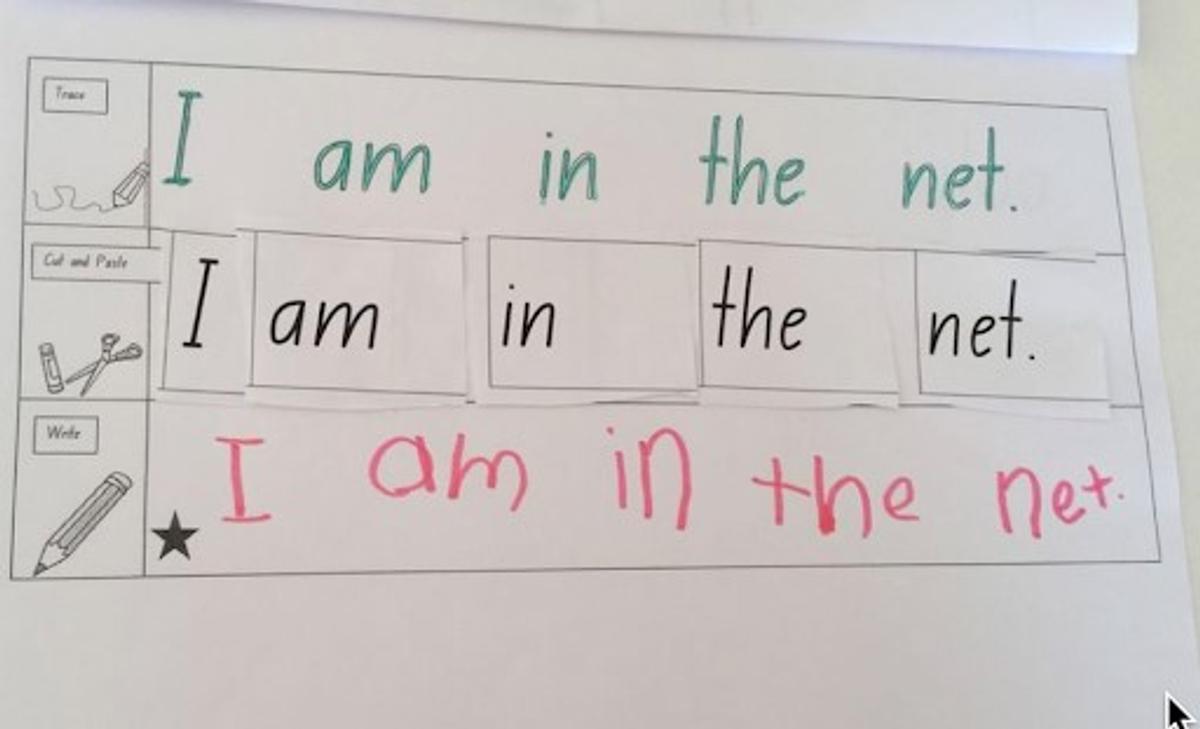 Trace
I am in the net.
Cut and Paste
I am in the net.
Write
I am in the net.